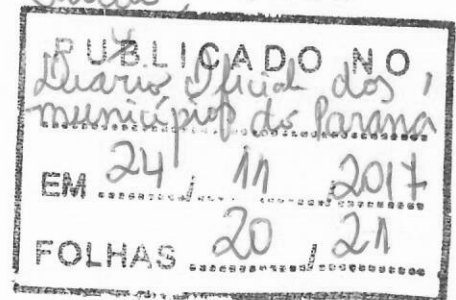 PUBLICADO NO
Diário Oficial dos
municípios do Paraná
EM 24 / 11 / 2017
FOLHAS 20 / 21